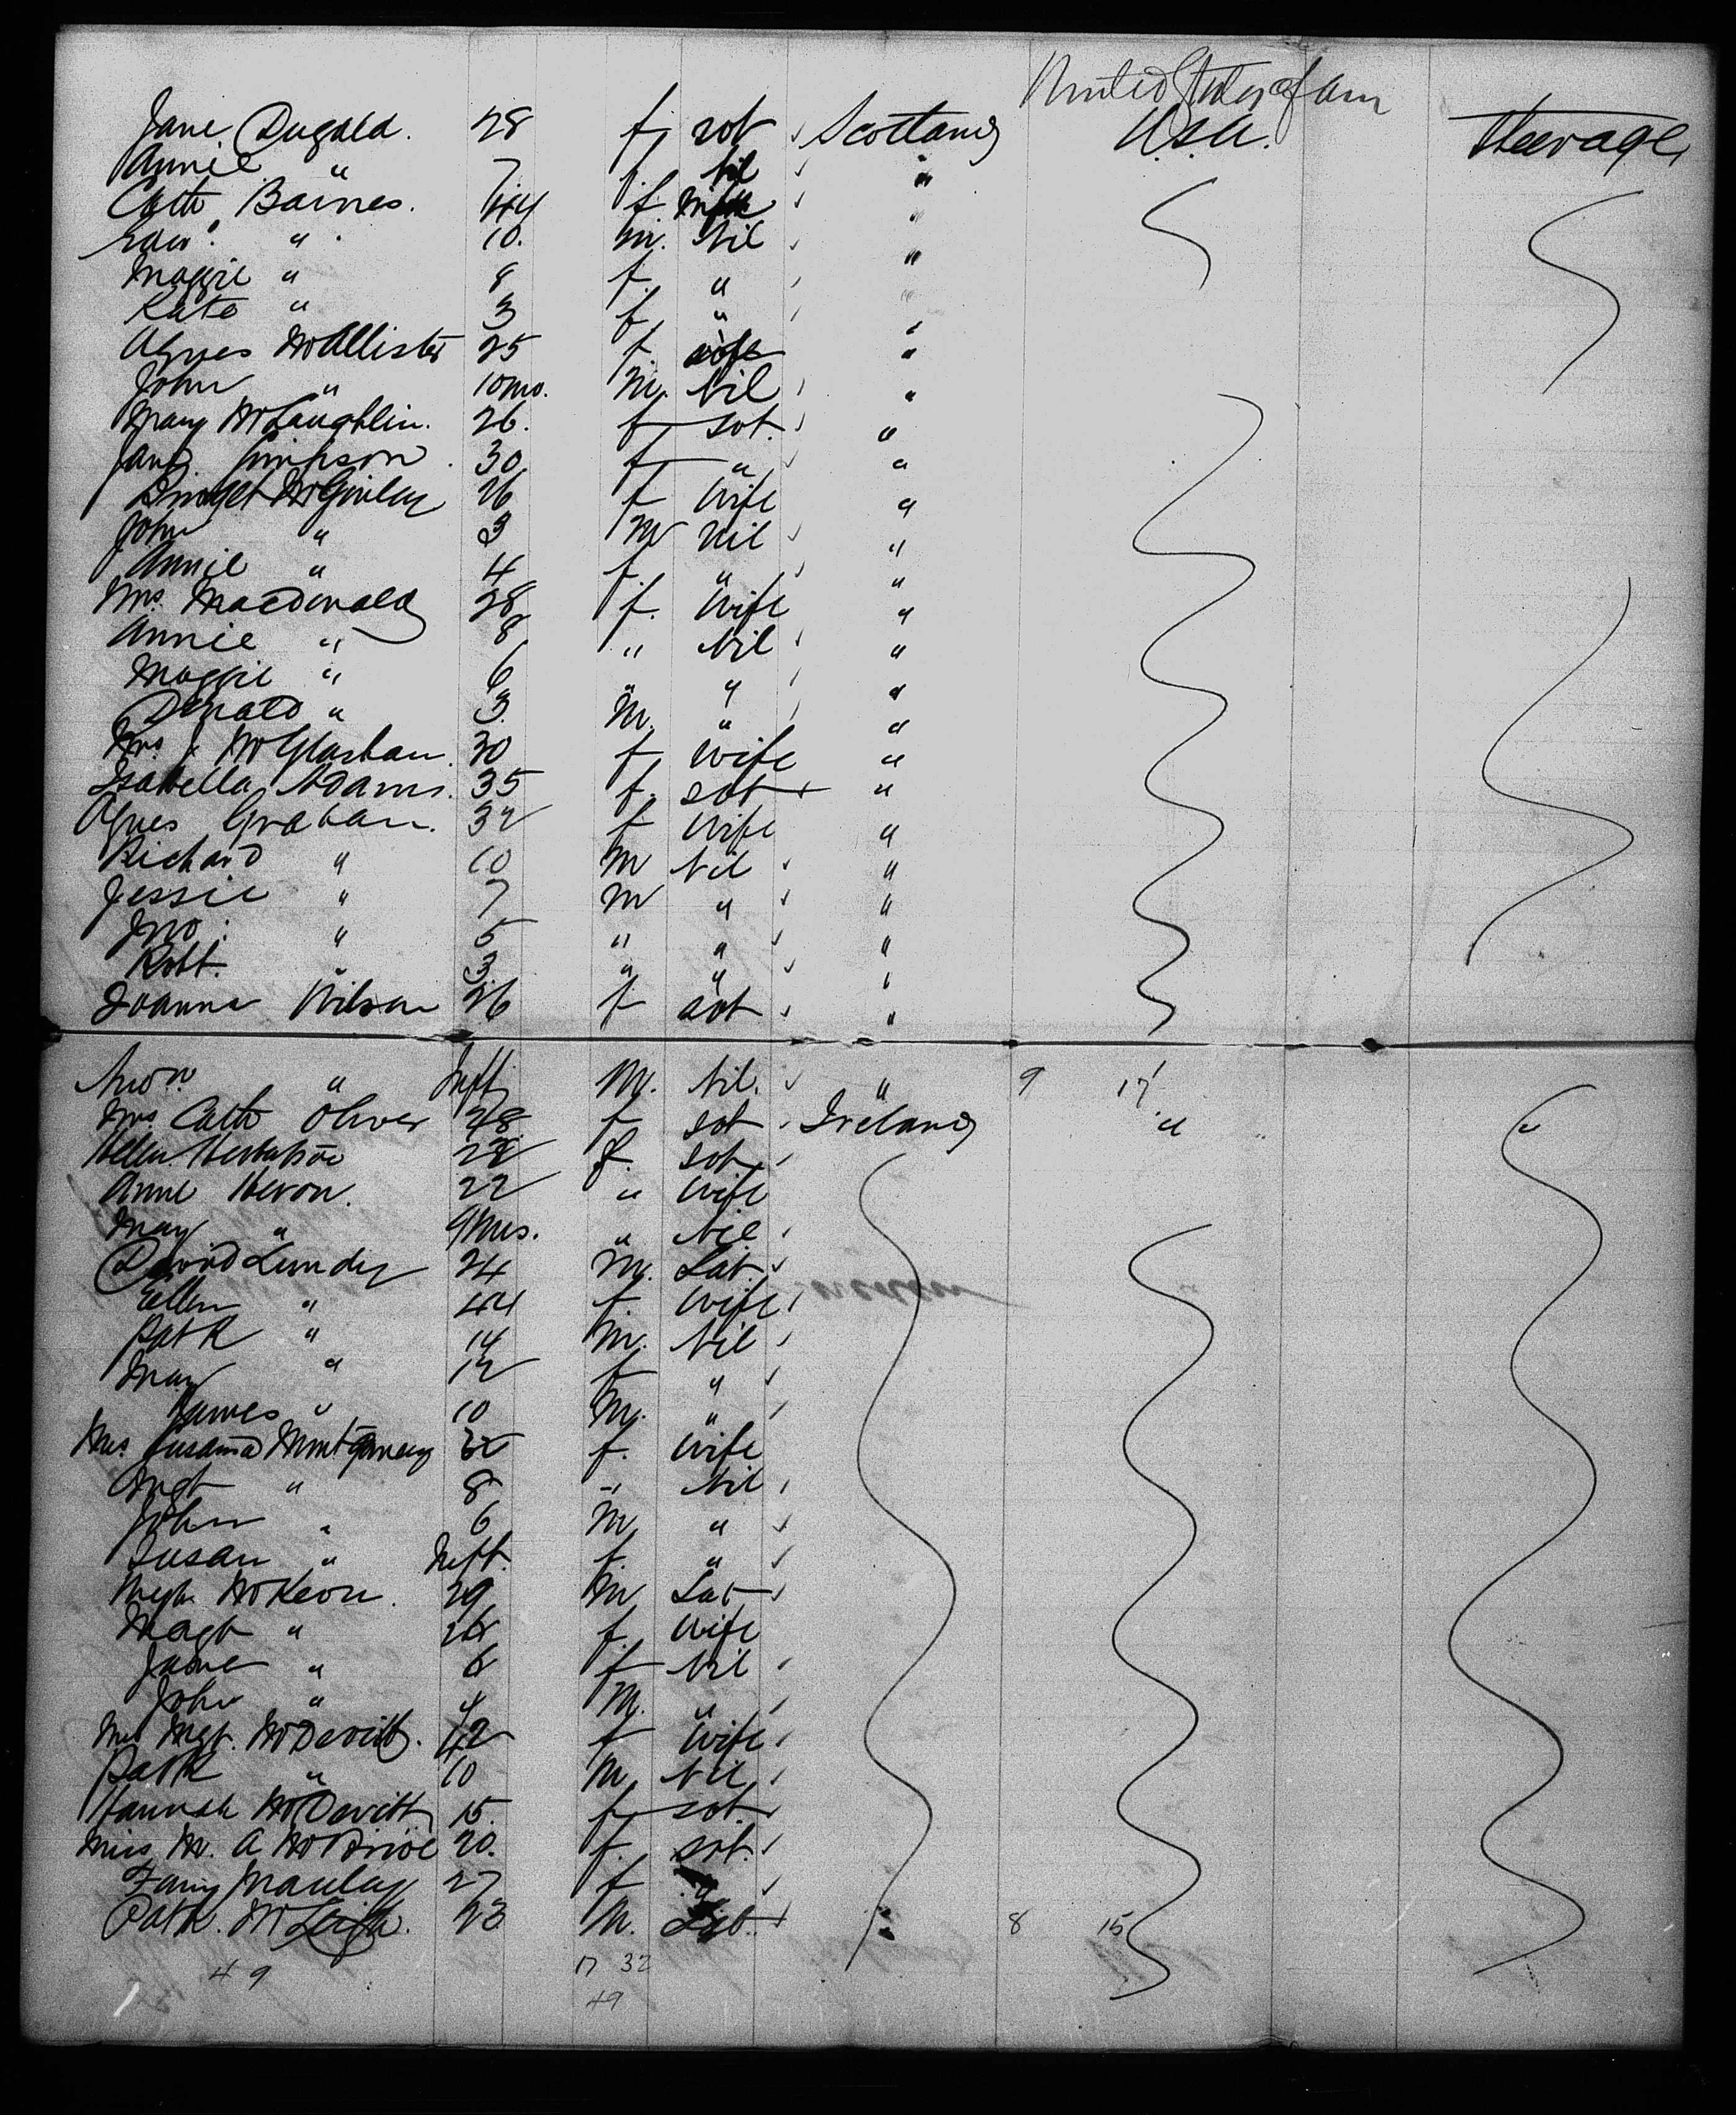 United States of Am
Jane Dugald. 28 f. sot Scotland U.S.A. Steerage
Annie " 7 f. Nil "
Cath Barnes. 44 f. Wife "
Edw. " 10. m. Nil "
Maggie " 8 f. " "
Kate " 3 f. " "
Agnes McAllister 25 f. wife "
John " 10 mo. M. Nil "
Mary McLaughlin. 26. f sot. "
Jane Simpson. 30 f " "
Bridget McGinley 26 f Wife "
John " 3 M Nil "
Annie " 4 f. " "
Mrs. MacDonald 28 f. Wife "
Annie " 8 " Nil "
Maggie " 6 " " "
Donald " 3 M. " "
Mrs J. McGlashan. 30 f Wife "
Isabella Adams. 35 f. sot "
Agnes Graham. 32 f Wife "
Richard " 10 M Nil "
Jessie " 7 M " "
Jno. " 5 " " "
Robt. " 3 " " "
Joanna Wilson 26 f sot "
" Inft M. Nil. " 9 17
Mrs Cath Oliver 48 f sot Ireland "
Helen 22 f. sot
Anne Heron. 22 " Wife
May " 9 Mos. " Nil
David Lundy 24 M. Lab.
Ellen " 44 f. Wife
Patk " 14 M. Nil
May " 12 f "
James " 10 M. "
Mrs Susanna Montgomery 32 f. Wife
Mgt " 8 " Nil
John " 6 M "
Susan " Inft. f. "
Hugh McKeon. 29 M Lab
Magt " 26 f Wife
Jane " 6 f Nil
John " 4 M. "
Mrs Mgt. McDevitt. 42 f Wife
Patk " 10 M Nil
Hannah McDevitt 15. f sot
Miss M. A McBride 20. f. sot.
Fanny Manley 27 f "
Patk. McLeigh. 23 M. Lab. 8 15
49 17 32
49